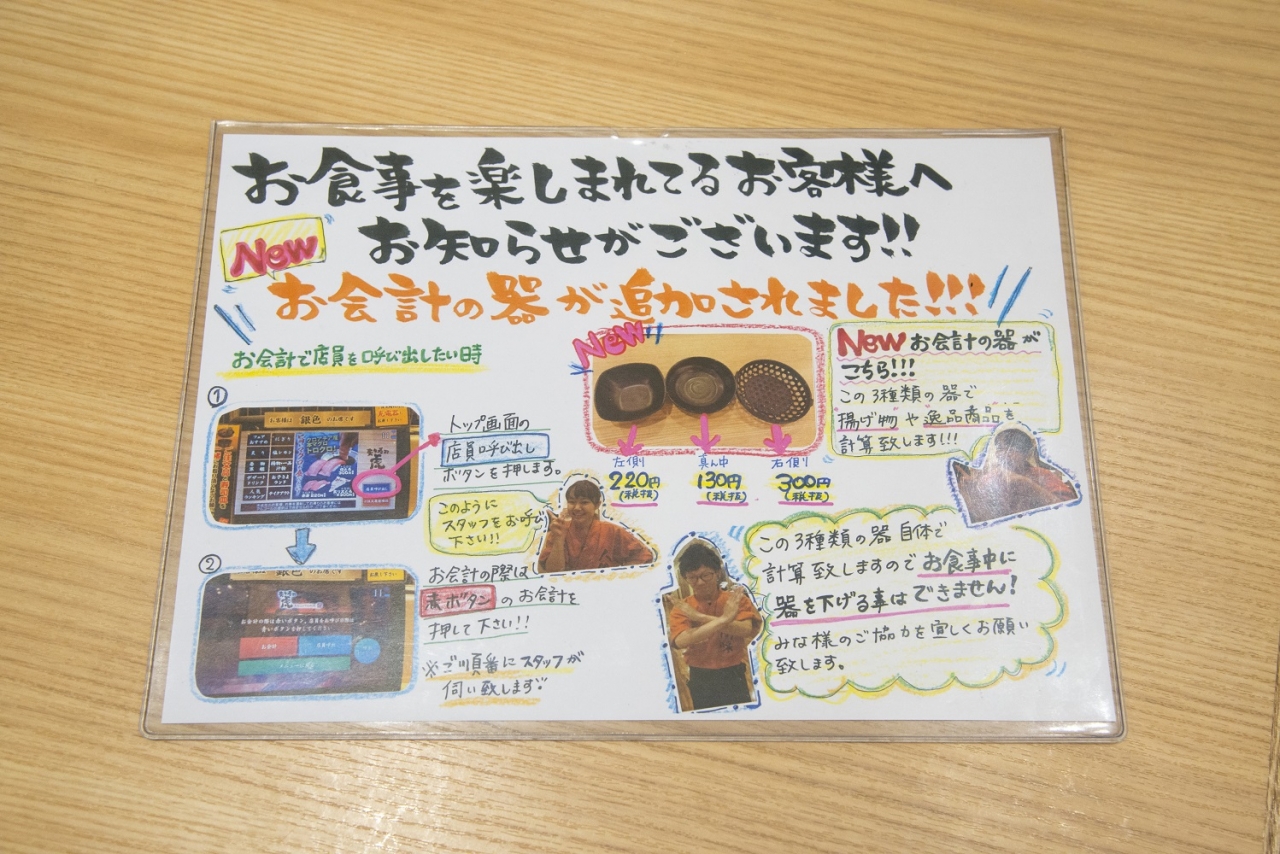 お食事を楽しまれてるお客様へ
お知らせがございます!!
New
お会計の器が追加されました!!!
お会計で店員を呼び出したい時
①
トップ画面の
店員呼び出し
ボタンを押します。
このように
スタッフをお呼び
下さい!!
②
お会計の際は
赤ボタンのお会計を
押して下さい!!
※ご順番にスタッフが
伺い致します
New
左側
220円
(税抜)
真ん中
130円
(税抜)
右側
300円
(税抜)
Newお会計の器が
こちら!!!
この3種類の器で
揚げ物や逸品商品を
計算致します!!!
この3種類の器自体で
計算致しますのでお食事中に
器を下げる事はできません!
みな様のご協力を宜しくお願い
致します。
銀色
お会計の際は赤いボタン、店員をお呼びの際は
青いボタンを押してください。
お会計